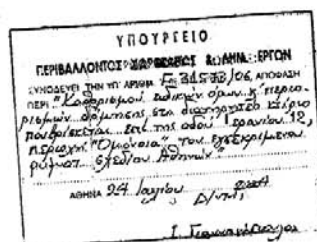 ΥΠΟΥΡΓΕΙΟ
ΠΕΡΙΒΑΛΛΟΝΤΟΣ ΕΡΓΩΝ
ΣΥΝΟΔΕΥΕΙ ΤΗΝ ΥΠ' ΑΡΙΘΜ /06, ΑΠΟΦΑΣΗ
ΠΕΡΙ "Καθορισμού ειδικών όρων κ' περιο-
ρισμών δόμησης στο διατηρητέο κτίριο
που βρίσκεται επί της οδού Γερανίου 12,
περιοχή "Ομόνοια" του εγκεκριμένου
ρυμοτ. σχεδίου Αθηνών"
ΑΘΗΝΑ 24